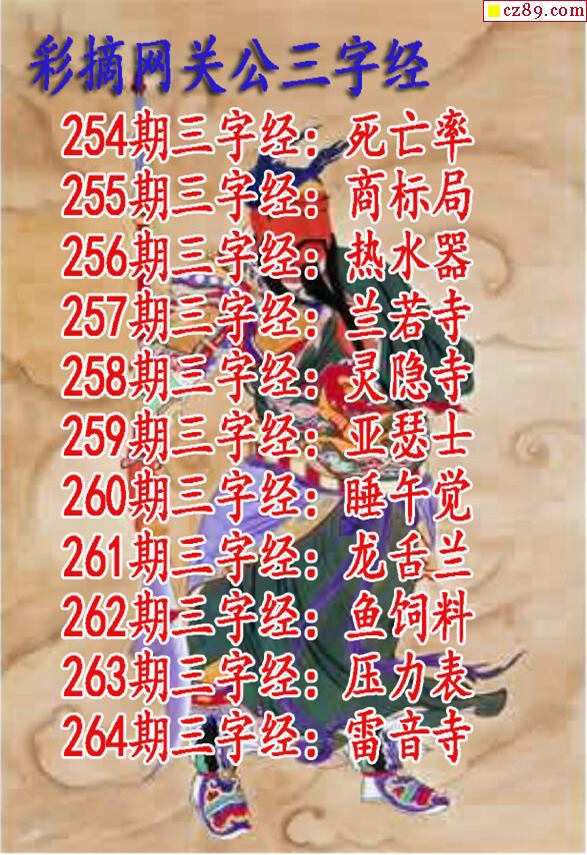 cz89.com
彩摘网关公三字经
254期三字经：死亡率
255期三字经：商标局
256期三字经：热水器
257期三字经：兰若寺
258期三字经：灵隐寺
259期三字经：亚瑟士
260期三字经：睡午觉
261期三字经：龙舌兰
262期三字经：鱼饲料
263期三字经：压力表
264期三字经：雷音寺